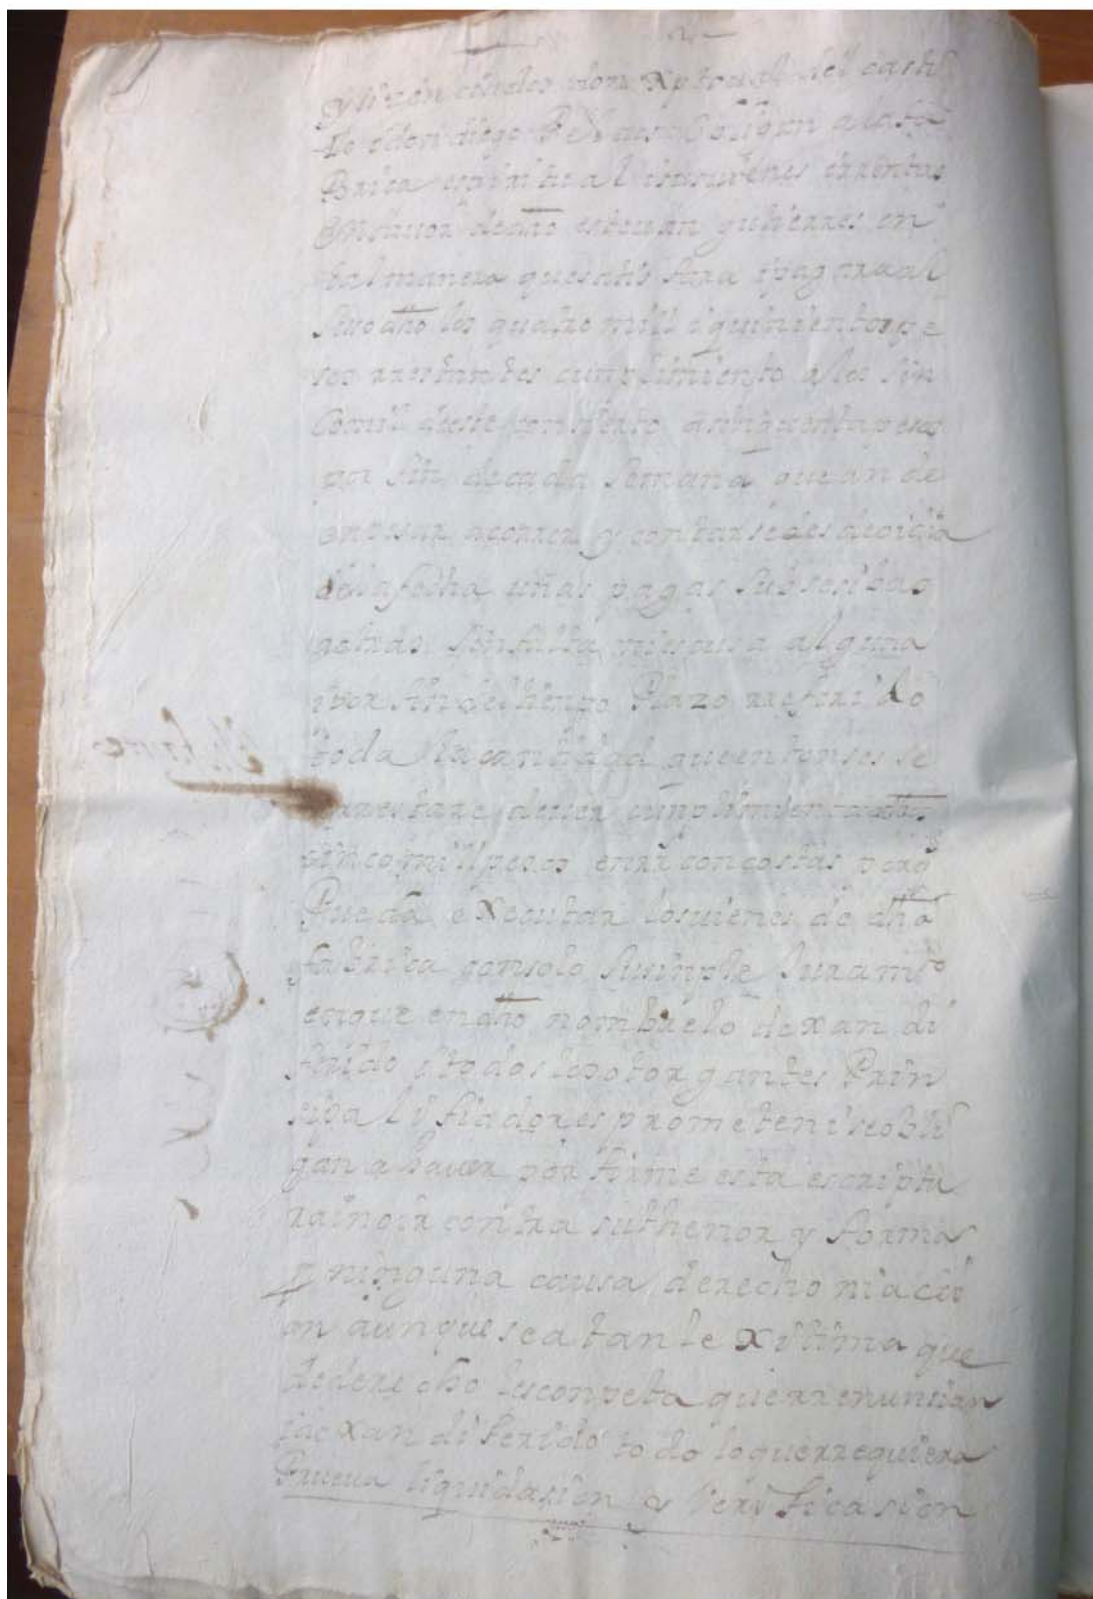 y lizenciados don Xptoual del casti
llo o don diego
Brica espiritual sus uienes i rrentas
en fauor de dho esteuan gutierres en
tal manera que satisfara i pagara al
suso dho los quatro mill i quinientos pe
sos rrestantes cunplimiento a los sin
co mil deste consierto a sinquenta pesos
por fin de cada semana que an de
enpesar a correr y contarse desde oi dia
de la fecha unas pagas subsesibas
a otras sin falta ni escusa alguna
i por fin del tienpo Plazo rreferido
toda la cantidad que entonses se
rrestare deuer cunplimiento a los dhos
sinco mill pesos en rr con costas porq
Pueda eXecutar los uienes de dha
fabrica con solo su sinple Juramto
en que en dho nombre lo dexan di
ferido i todos los otorgantes Prin
sipal i fiadores prometen i se obli
gan a hauer por firme esta escriptu
ra i no ir contra su thenor y forma
p ninguna causa derecho ni acci
on aunque sea tan lexitima que
de derecho les conpeta que rrenuncian
i dexan diferido todo lo que rrequiera
Prueua liquidasion y Verificasion